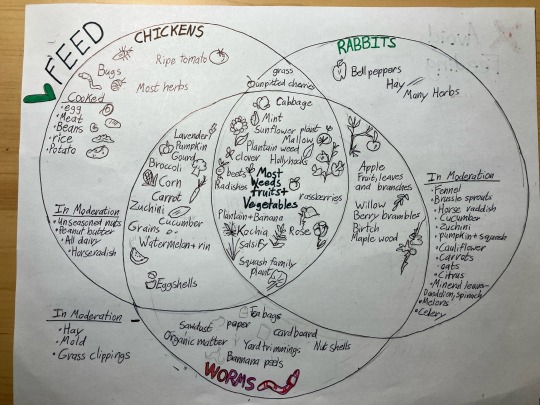 FEED
CHICKENS
Ripe tomato
Bugs
Most herbs
Cooked
• egg
• Meat
• Beans
• rice
• Potato
In Moderation
• unseasoned nuts
• Peanut butter
• All dairy
• Horseradish
RABBITS
Bell peppers
Hay
Many Herbs
In Moderation
• Fennel
• Brussle sprouts
• Horse raddish
• cucumber
• Zuchini
• pumpkin + squash
• Cauliflower
• Carrots
• oats
• Citrus
• Mineral leaves-
Dandelion, spinach
• Melons
• Celery
grass
unpitted cherries
Cabbage
Mint
Sunflower plant
Mallow
Plantain weed
clover
Hollyhock
beets
Radishes
Most
Weeds
fruits +
Vegetables
raspberries
Plantain + Banana
Kochia
Rose
Salsify
Squash family
plant
Lavender
Pumpkin
Gourd
Broccoli
Corn
Carrot
Zuchini
Cucumber
Grains
Watermelon + rin
Eggshells
Apple
Fruit, leaves
and branches
Willow
Berry brambles
Birtch
Maple wood
In Moderation
• Hay
• Mold
• Grass clippings
Tea bags
Sawdust
paper
cardboard
Organic matter
Yard trimmings
Nut shells
Bannana peels
WORMS